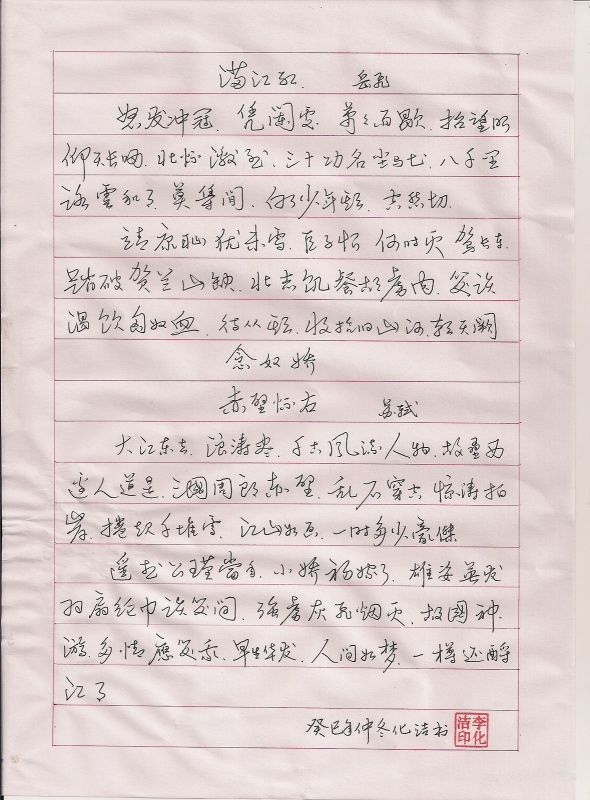 满江红 岳飞
怒发冲冠、凭阑处、萧々雨歇、抬望眼
仰天长啸、壮怀激烈、三十功名尘与土、八千里
路雲和月、莫等间、白了少年头、空悲切
靖康耻 犹未雪、臣子恨 何时灭 驾长车
踏破贺兰山缺、壮志饥餐胡虏肉、笑谈
渴饮匈奴血、待从头、收拾旧山河、朝天阙
念奴娇
赤壁怀古 苏轼
大江东去、浪涛尽、千古风流人物、故垒西
边人道是、三國周郎赤壁、乱石穿空 惊涛拍
岸、捲起千堆雪、江山如画、一时多少豪傑
遥想公瑾當年、小娇初嫁了、雄姿英发
羽扇纶巾谈笑间、强虏灰飞烟灭、故國神
游、多情應笑我、早生华发、人间如梦、一樽还酹
江月
癸巳年仲冬化洁书 李化洁印